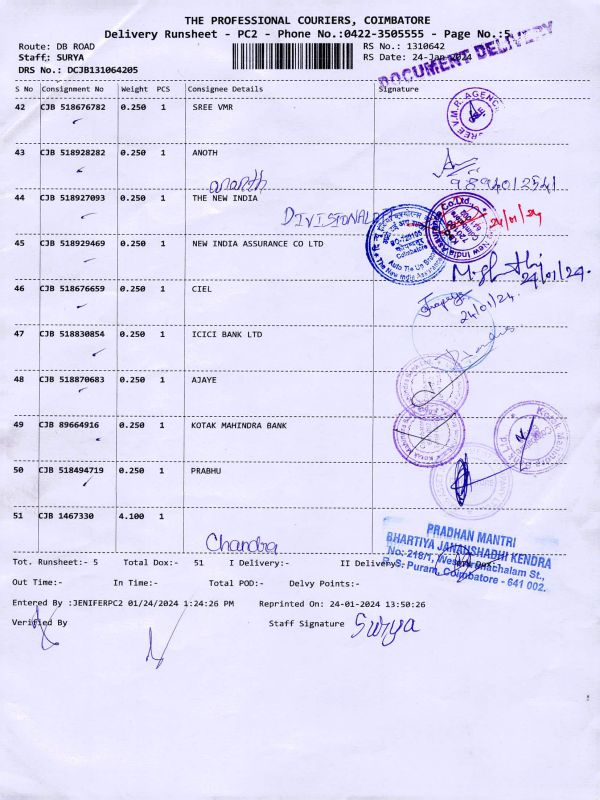 THE PROFESSIONAL COURIERS, COIMBATORE
Delivery Runsheet - PC2 - Phone No.:0422-3505555 - Page No.:5
DOCUMENT DELIVERY
Route: DB ROAD RS No.: 1310642
Staff: SURYA RS Date: 24-Jan-2024
DRS No.: DCJB131064205
S No Consignment No Weight PCS Consignee Details Signature
42 CJB 518676782 0.250 1 SREE VMR
43 CJB 518928282 0.250 1 ANOTH
ananth 9894012541
44 CJB 518927093 0.250 1 THE NEW INDIA
DIVISIONAL 24/01/24
45 CJB 518929469 0.250 1 NEW INDIA ASSURANCE CO LTD
24/01/24.
46 CJB 518676659 0.250 1 CIEL
24/01/24.
47 CJB 518830854 0.250 1 ICICI BANK LTD
48 CJB 518870683 0.250 1 AJAYE
49 CJB 89664916 0.250 1 KOTAK MAHINDRA BANK
50 CJB 518494719 0.250 1 PRABHU
51 CJB 1467330 4.100 1
Chandra
PRADHAN MANTRI
BHARTIYA JANAUSHADHI KENDRA
No: 218/1, West Venkatachalam St.,
R.S. Puram, Coimbatore - 641 002.
Tot. Runsheet:- 5 Total Dox:- 51 I Delivery:- II Delivery:-
Out Time:- In Time:- Total POD:- Delvy Points:-
Entered By :JENIFERPC2 01/24/2024 1:24:26 PM Reprinted On: 24-01-2024 13:50:26
Verified By Staff Signature Surya